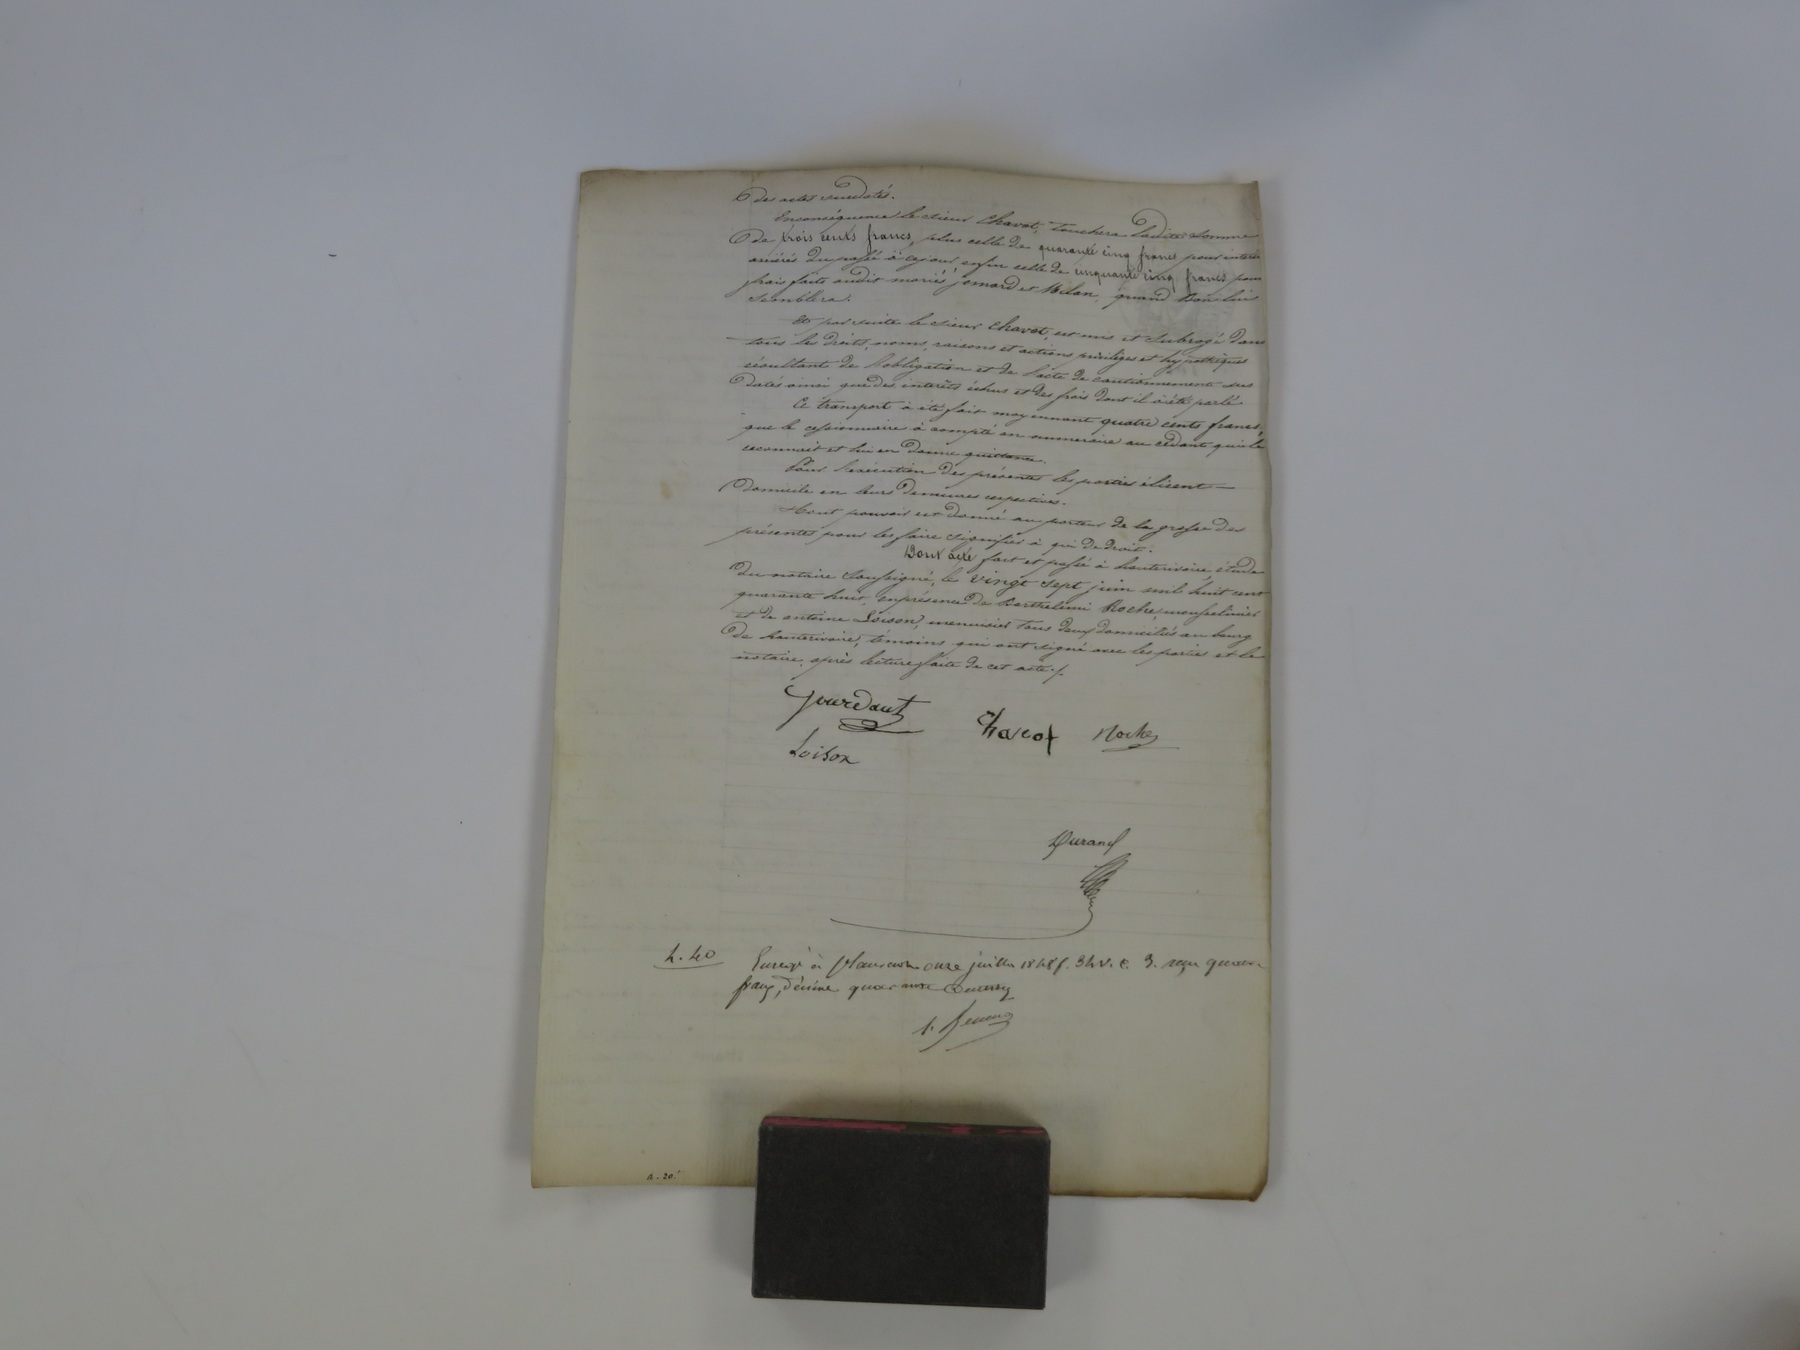 des actes susdatés.
Enconséquence le sieur Chavot, Touchera Ladite Somme
de trois cents francs, plus celle de quarante cinq francs pour intérêts
arriérés du passé à cejour enfin celle de cinquante cinq francs pour
frais faits audit mariés Jomard et Milan, quand bon lui
Semblera.
Et par suite le sieur Chavot, est mis et Subrogé dans
tous les droits, noms, raisons et actions privilèges et hypothèques
résultants de l'obligation et de l'acte de cautionnement sus
datés ainsi que des intérêts échus et des frais dont il a été parlé
Ce transport à été fait moyennant quatre cents francs,
que le cessionnaire à compté en numeraire au cédant qui le
reconnait et lui en donne quittance.
Pour l'exécution des présentes les parties élisent —
Domicile en leurs Demeures respectives.
Tout pouvoir est donné au porteur de la grosse des
présentes pour les faire signifier à qui de droit.
Dont acte fait et passé à hauterivoire, étude
Du notaire Soussigné, le vingt sept juin mil huit cent
quarante huit, enprésence de Barthelemi Roche, mousselinier
et de antoine Loison, menuisier tous deux domiciliés au bourg
de hauterivoire, témoins qui ont signé avec les parties et le
notaire, après lecture faite de cet acte./.
Jourdant
Chavot
Roche
Loison
Durand
4.40
à onze juillet 1848 f. 34 v. c. 3. reçu quatre
francs, Décime quarante Centimes
a. 20.